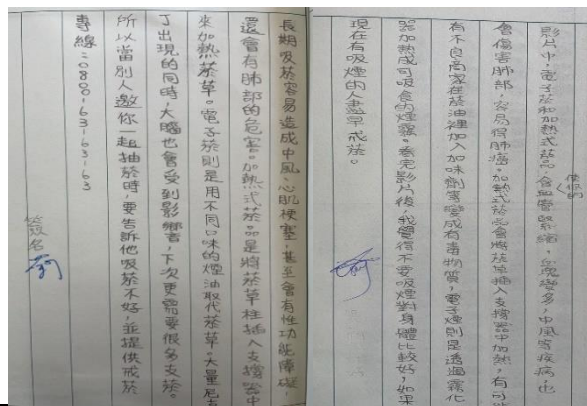 影片中,電子菸和加熱式菸品,含血管緊縮,血塊變多,中風等疾病也
使你的
會傷害肺部,容易得肺癌。加熱式菸品會將菸草插入支撐器中加熱,有可
有不良商家在菸油裡加入加味劑等變成有毒物質,電子煙則是透過霧化
器加熱成可吸食的煙霧。看完影片後,我覺得不要吸煙對身體比較好,如果
現在有吸煙的人盡早戒菸。
長期吸菸容易造成中風、心肌梗塞,甚至會有性功能障礙,
還會有肺部的危害。加熱式菸品是將菸草柱插入支撐器中
來加熱菸草。電子菸則是用不同口味的煙油取代菸草。大量尼古
丁出現的同時,大腦也會受到影響,下次更需要很多支菸。
所以當別人邀你一起抽菸時,要告訴他吸菸不好,並提供戒菸
專線:0800-63-63-63
簽名